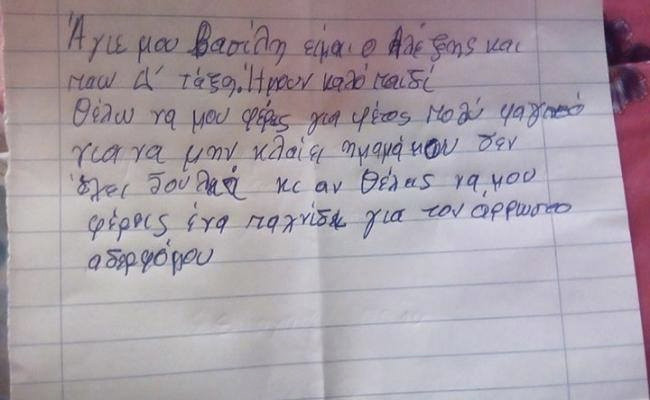 Άγιε μου Βασίλη είμαι ο Αλέξης και
παω Δ' τάξη. Ήμουν καλό παιδί
Θέλω να μου φέρεις για φέτος πολύ φαγητό
για να μην κλαίει η μαμά μου δεν
έχει δουλειά κι αν θέλεις να μου
φέρεις ένα παιχνίδι για τον άρρωστο
αδερφόμου